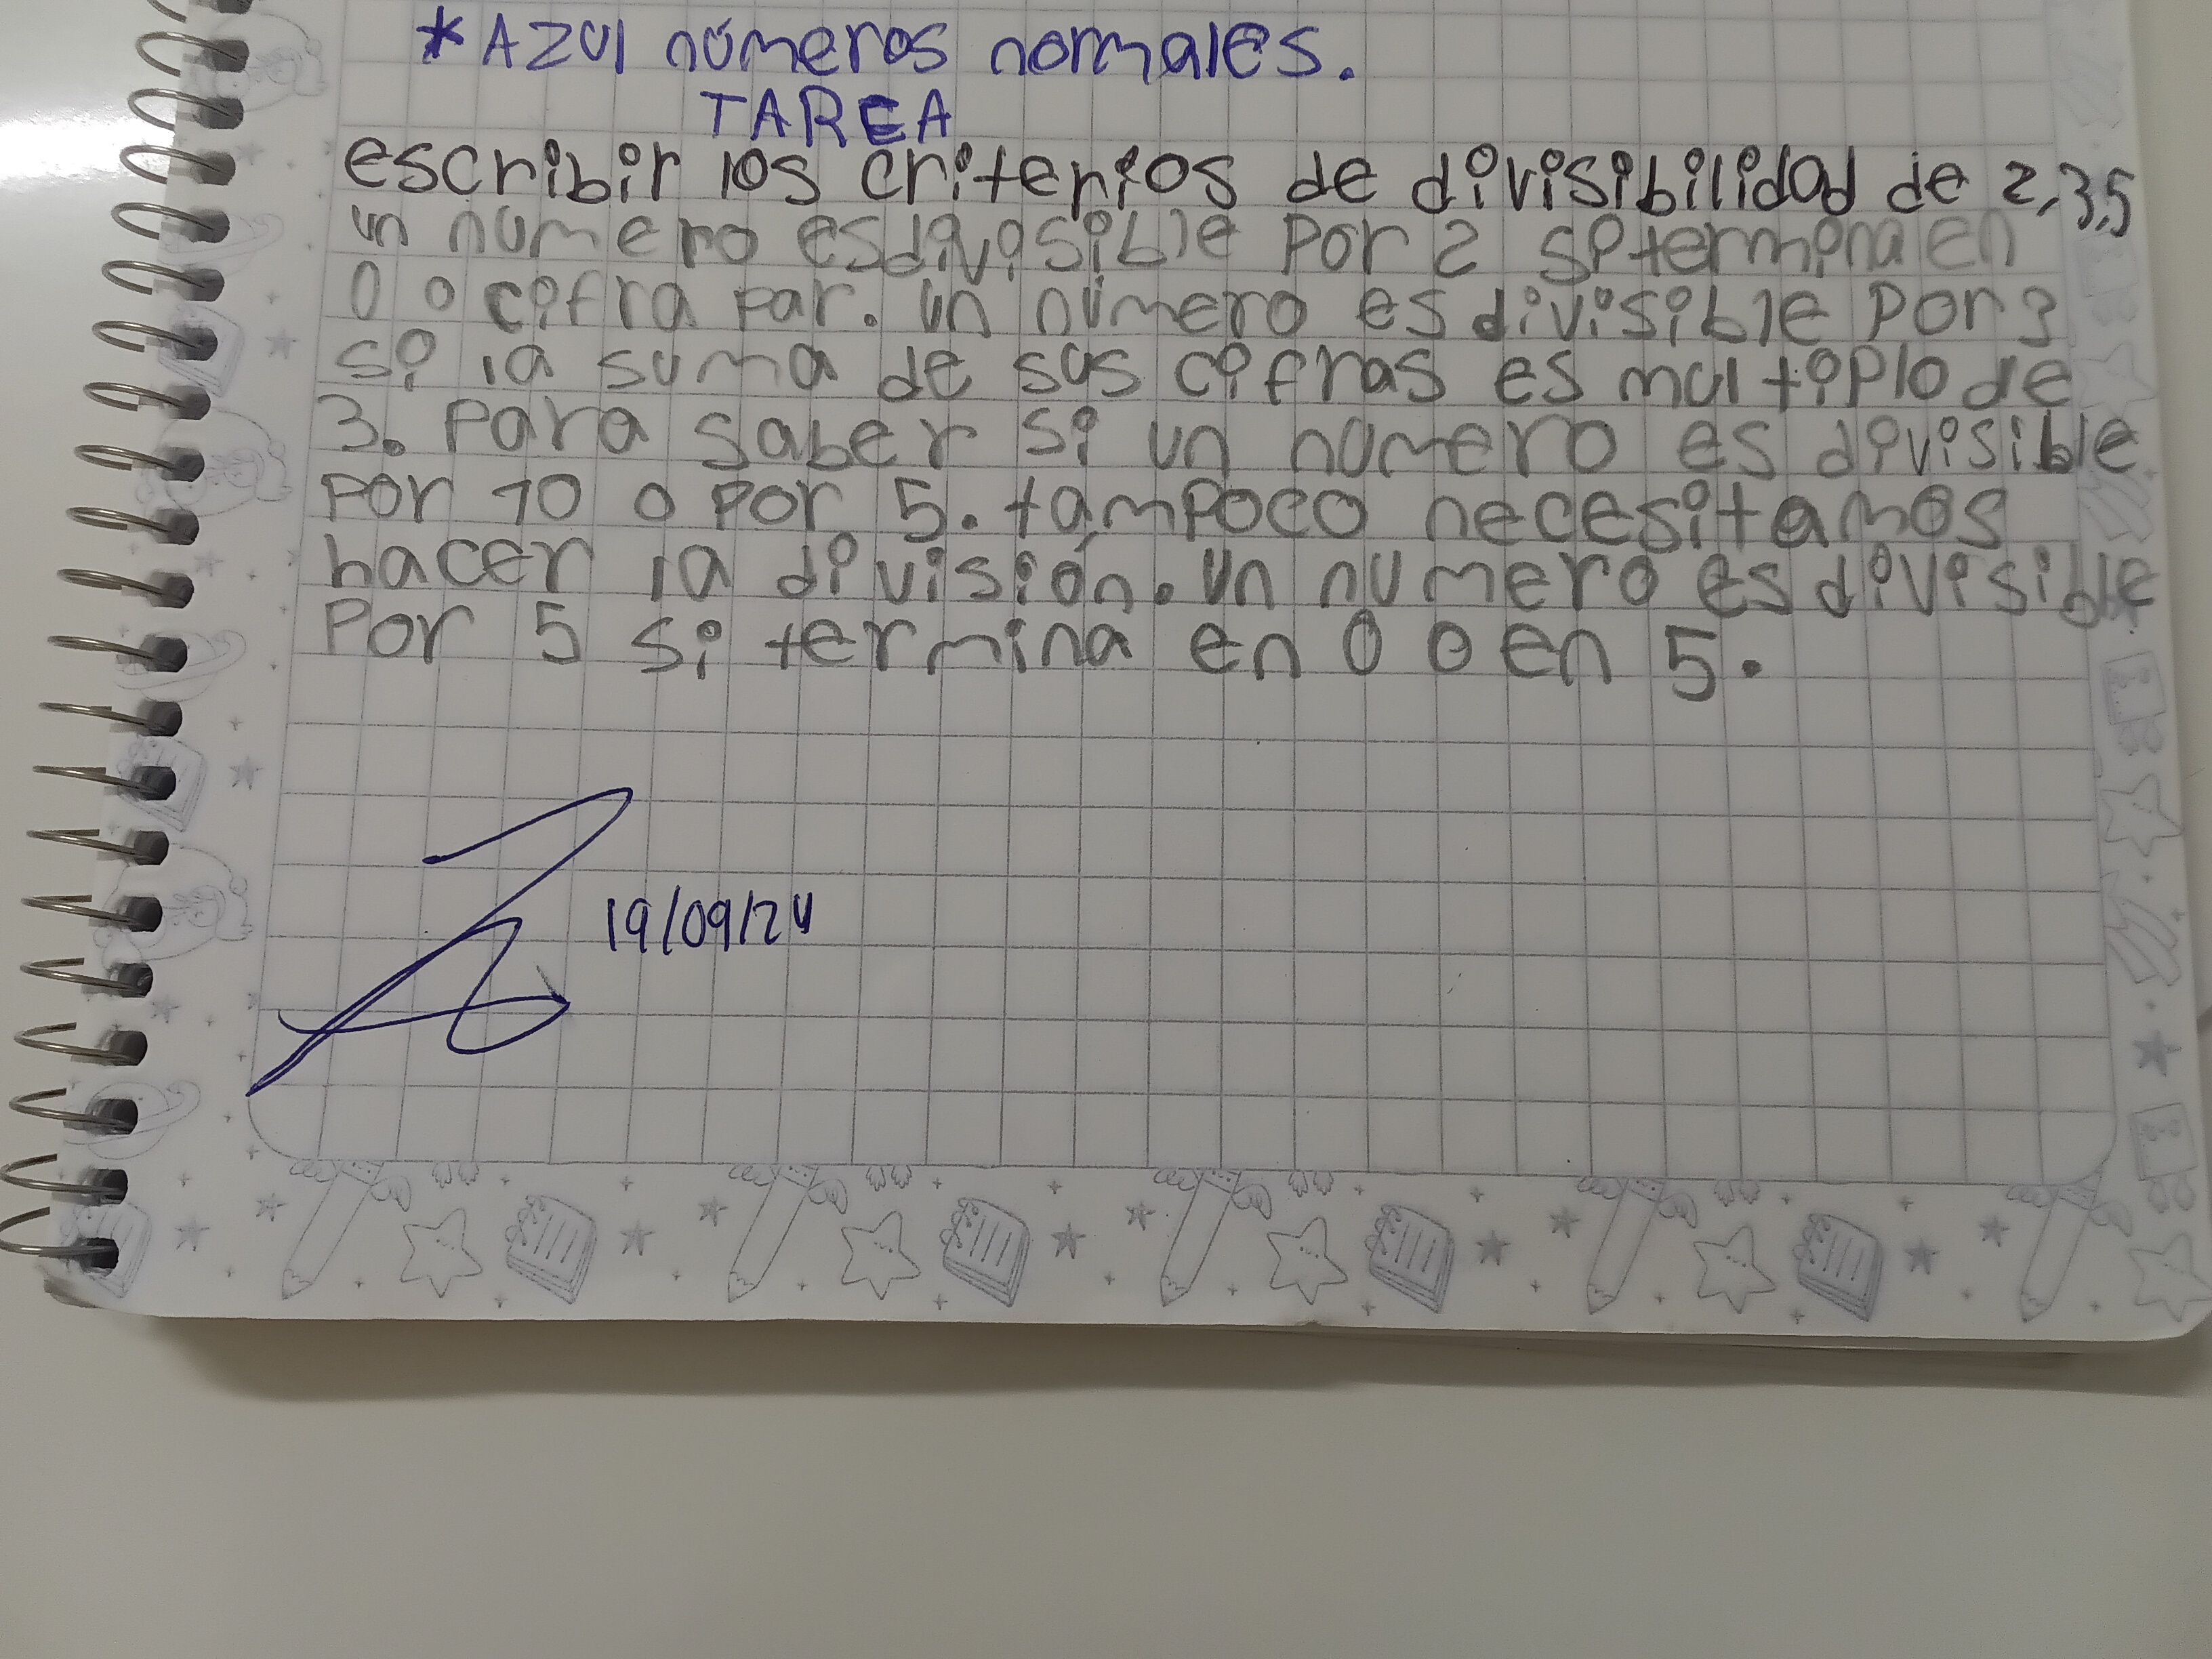 * AZUl números normales.
TAREA
escribir los criterios de divisibilidad de 2,3,5
un numero es divisible por 2 si termina en
0 o cifra par. un número es divisible por 3
si la suma de sus cifras es multiplo de
3. para saber si un numero es divisible
por 10 o por 5. tampoco necesitamos
hacer la división. un numero es divisible
por 5 si termina en 0 o en 5.
19/09/24